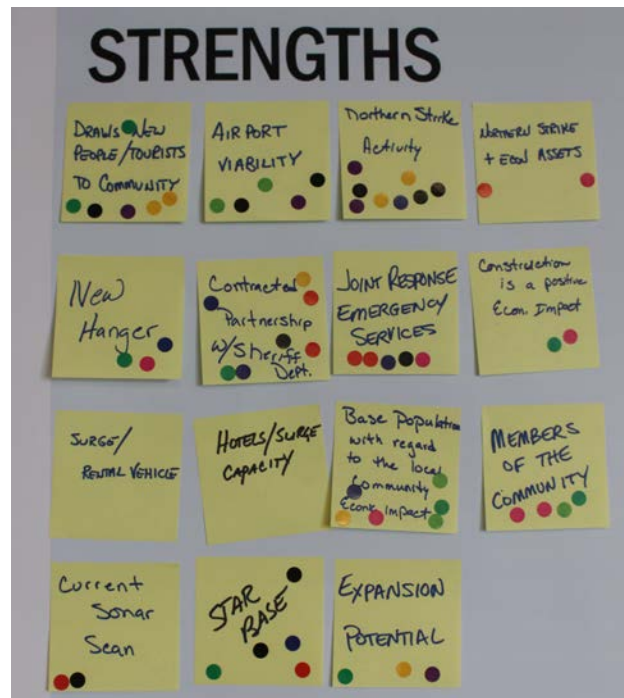 STRENGTHS
DRAWS NEW
PEOPLE/TOURISTS
TO COMMUNITY
AIRPORT
VIABILITY
Northern Strike
Activity
NORTHERN STRIKE
+ ECON ASSETS
New
Hanger
Contracted
Partnership
W/Sheriff
Dept.
JOINT RESPONSE
EMERGENCY
SERVICES
Construction
is a positive
Econ. Impact
SURGE/
RENTAL VEHICLE
HOTELS/SURGE
CAPACITY
Base Population
with regard
to the local
Community
Econ impact
MEMBERS
OF THE
COMMUNITY
Current
Sonar
Scan
STAR
BASE
EXPANSION
POTENTIAL